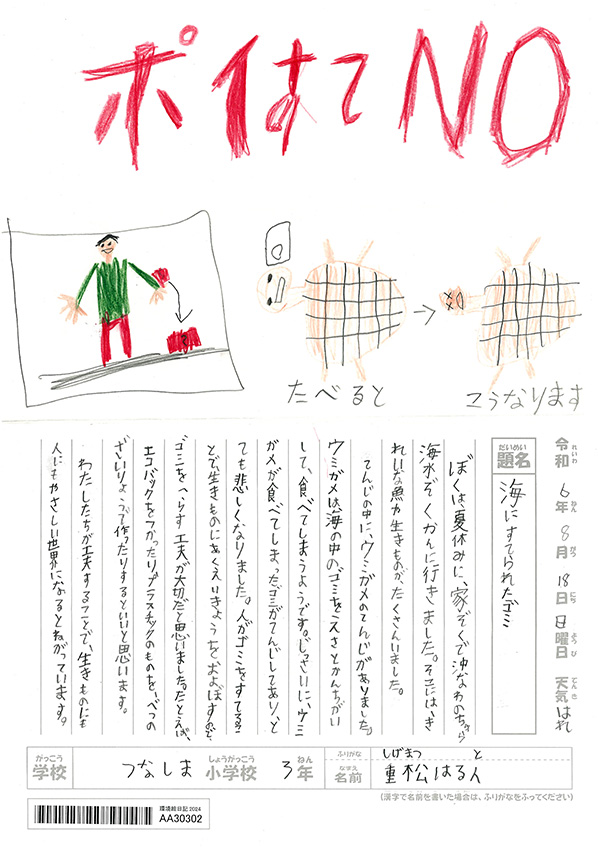 ポイすてNO
たべると
こうなります
令和6年8月18日日曜日 天気 はれ
れいわ ねん がつ にち ようび てんき
だいめい
題名 海にすてられたゴミ
ぼくは夏休みに、家ぞくで沖なわのちゅら
海水ぞくかんに行きました。そこには、き
れいな魚や生きものが、たくさんいました。
てんじの中に、ウミガメのてんじがありました。
ウミガメは海の中の、ゴミをえさとかんちがい
して、食べてしまうようです。じっさいに、ウミ
ガメが食べてしまったゴミがてんじしてあり、と
ても悲しくなりました。人がゴミをすてるこ
とで、生きものにあくえいきょうをおよぼすので、
ゴミをへらす工夫が大切だと思いました。たとえば、
エコバックをつかったり、プラスチックのものを、べつの
ざいりょうで作ったりするといいと思います。
わたしたちが工夫することで、生きものにも
人にもやさしい世界になるとねがっています。
がっこう しょうがっこう ねん ふりがな しげまつ と
学校 つなしま 小学校 3年 なまえ 名前 重松はる人
(漢字で名前を書いた場合は、ふりがなをふってください)
環境絵日記2024
AA30302